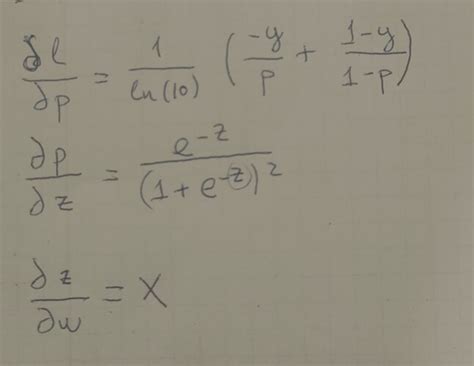 ∂l/∂p = 1/ln(10) (-y/p + 1-y/1-p)
∂p/∂z = e^-z/(1 + e^-z)^2
∂z/∂w = x